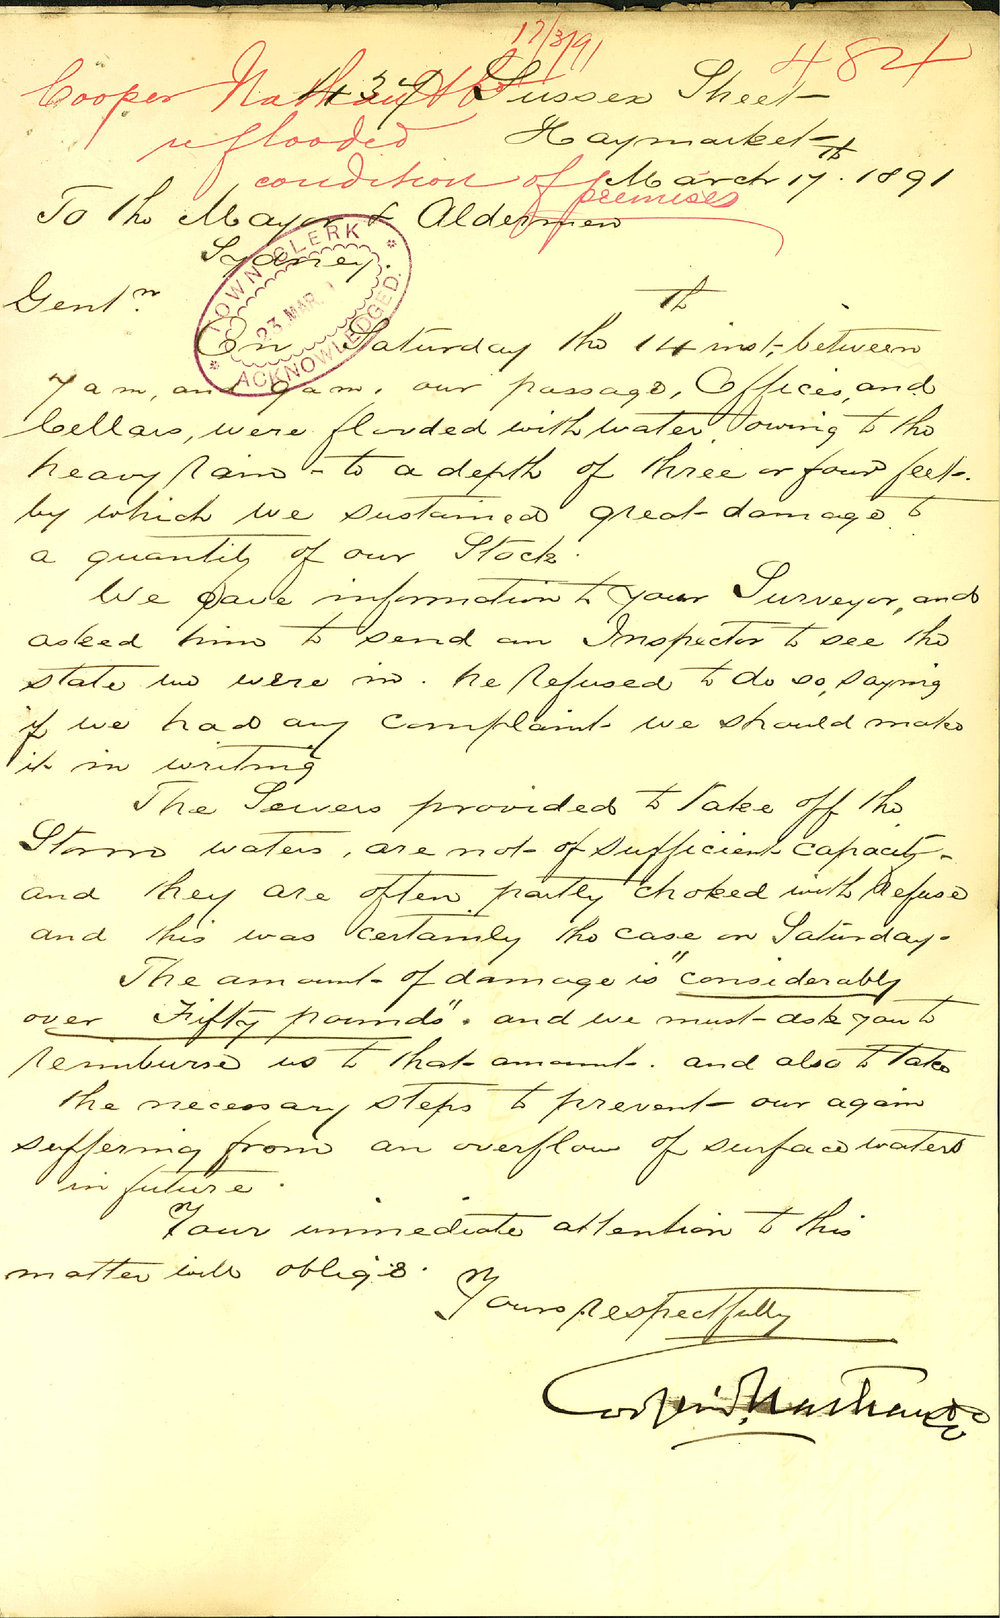 17/3/91
484
Cooper Nathan & Co
re flooded
condition of premises
437 Sussex Street
Haymarket
March 17th 1891
To the Mayor & Aldermen
Sydney.
TOWN CLERK
23 MAR.
ACKNOWLEDGED.
Gentn.
On Saturday the 14th inst, between
7 am, and 9 am, our passage, Offices, and
Cellars, were flooded with water, owing to the
heavy Rain - to a depth of three or four feet.
by which we sustained great damage to
a quantity of our Stock.
We gave information to your Surveyor, and
asked him to send an Inspector to see the
state we were in. he Refused to do so, saying
if we had any complaint we should make
it in writing
The Sewers provided to take off the
Storm waters, are not of sufficient capacity -
and they are often partly choked with Refuse
and this was certainly the case on Saturday.
The amount of damage is "considerably
over Fifty pounds". and we must ask you to
Reimburse us to that amount. and also to take
the necessary steps to prevent our again
suffering from an overflow of surface waters
in future.
Your immediate attention to this
matter will oblige.
Yours Respectfully
Cooper Nathan & Co